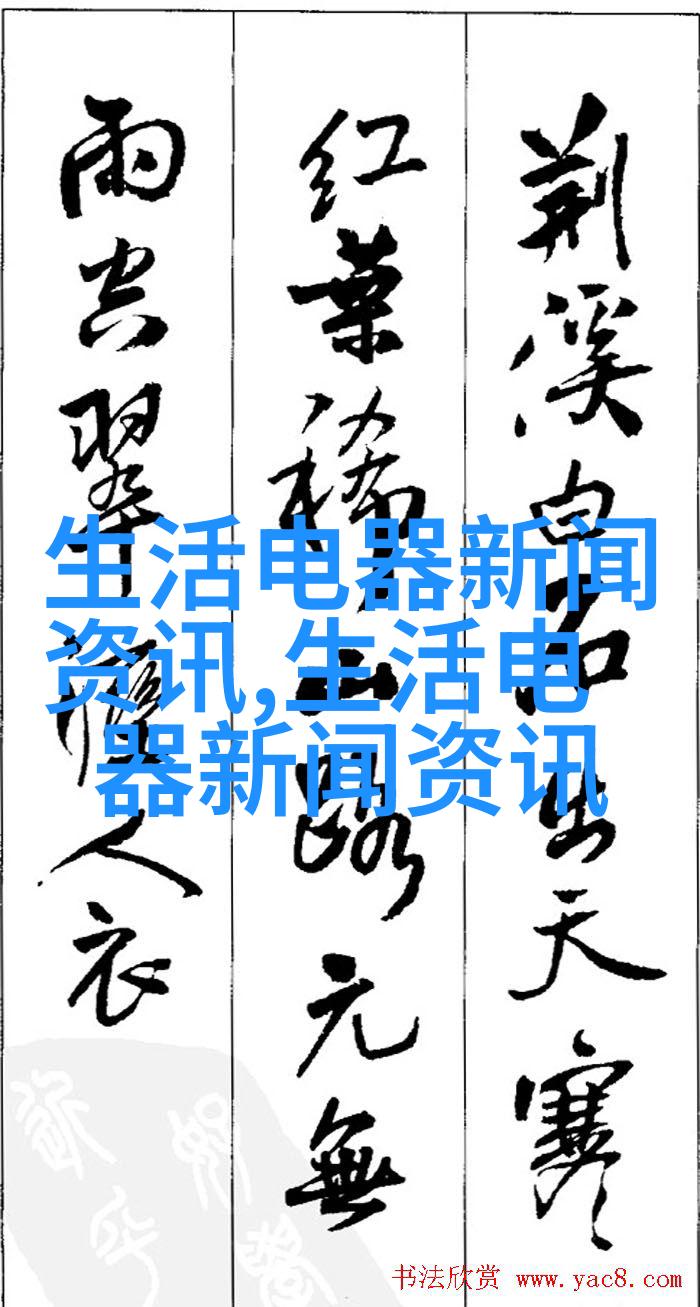 荆溪白石出天寒
红葉稀山路元無
雨空翠濕人衣
生活电器新闻
资讯,生活电
器新闻资讯
书法欣赏 www.yac8.com